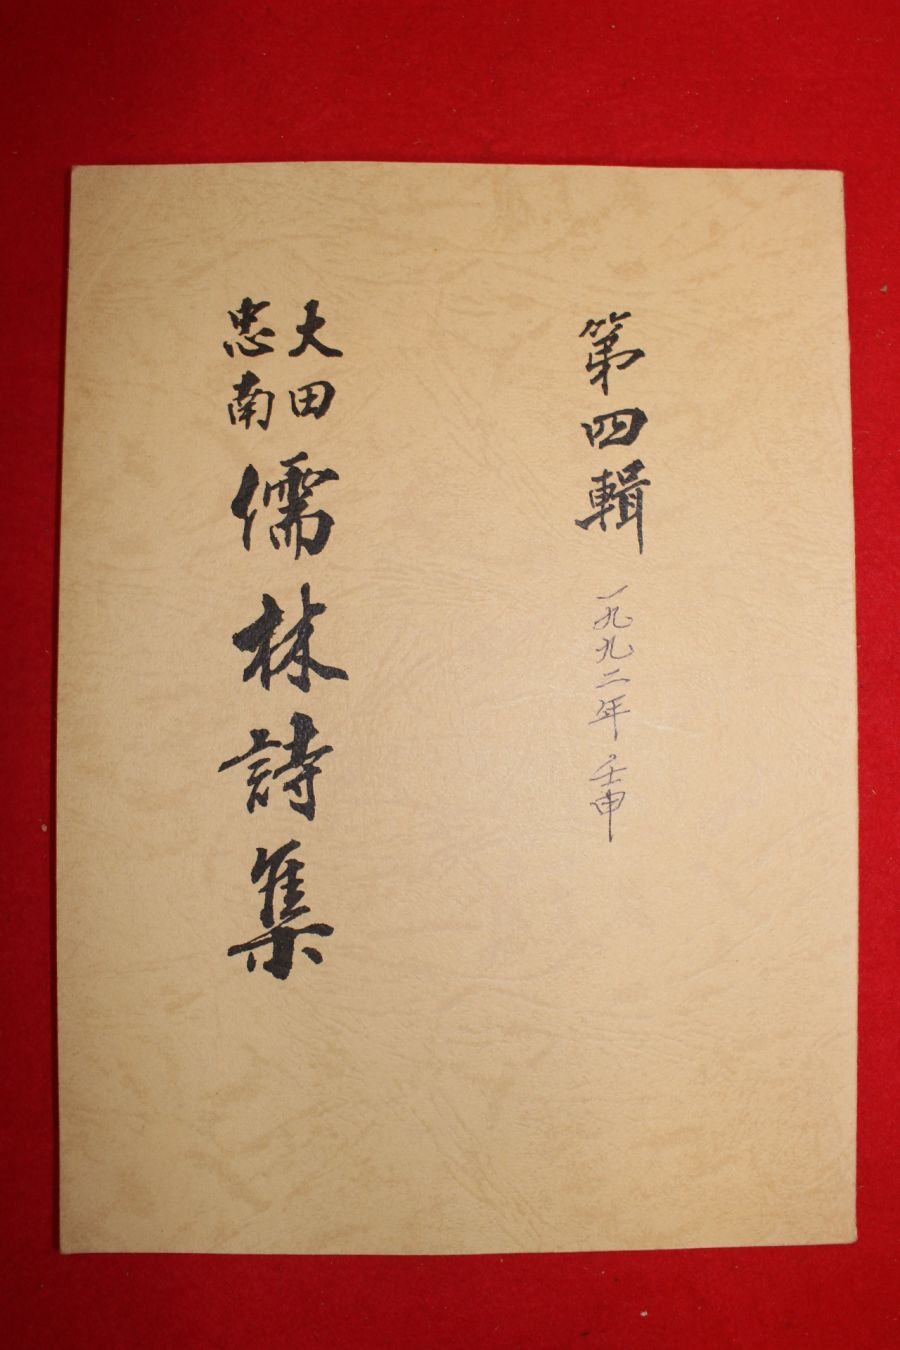 第四輯 一九九二年 壬申
大田
忠南
儒林詩集